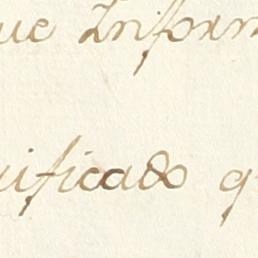 que Inform
ificado q